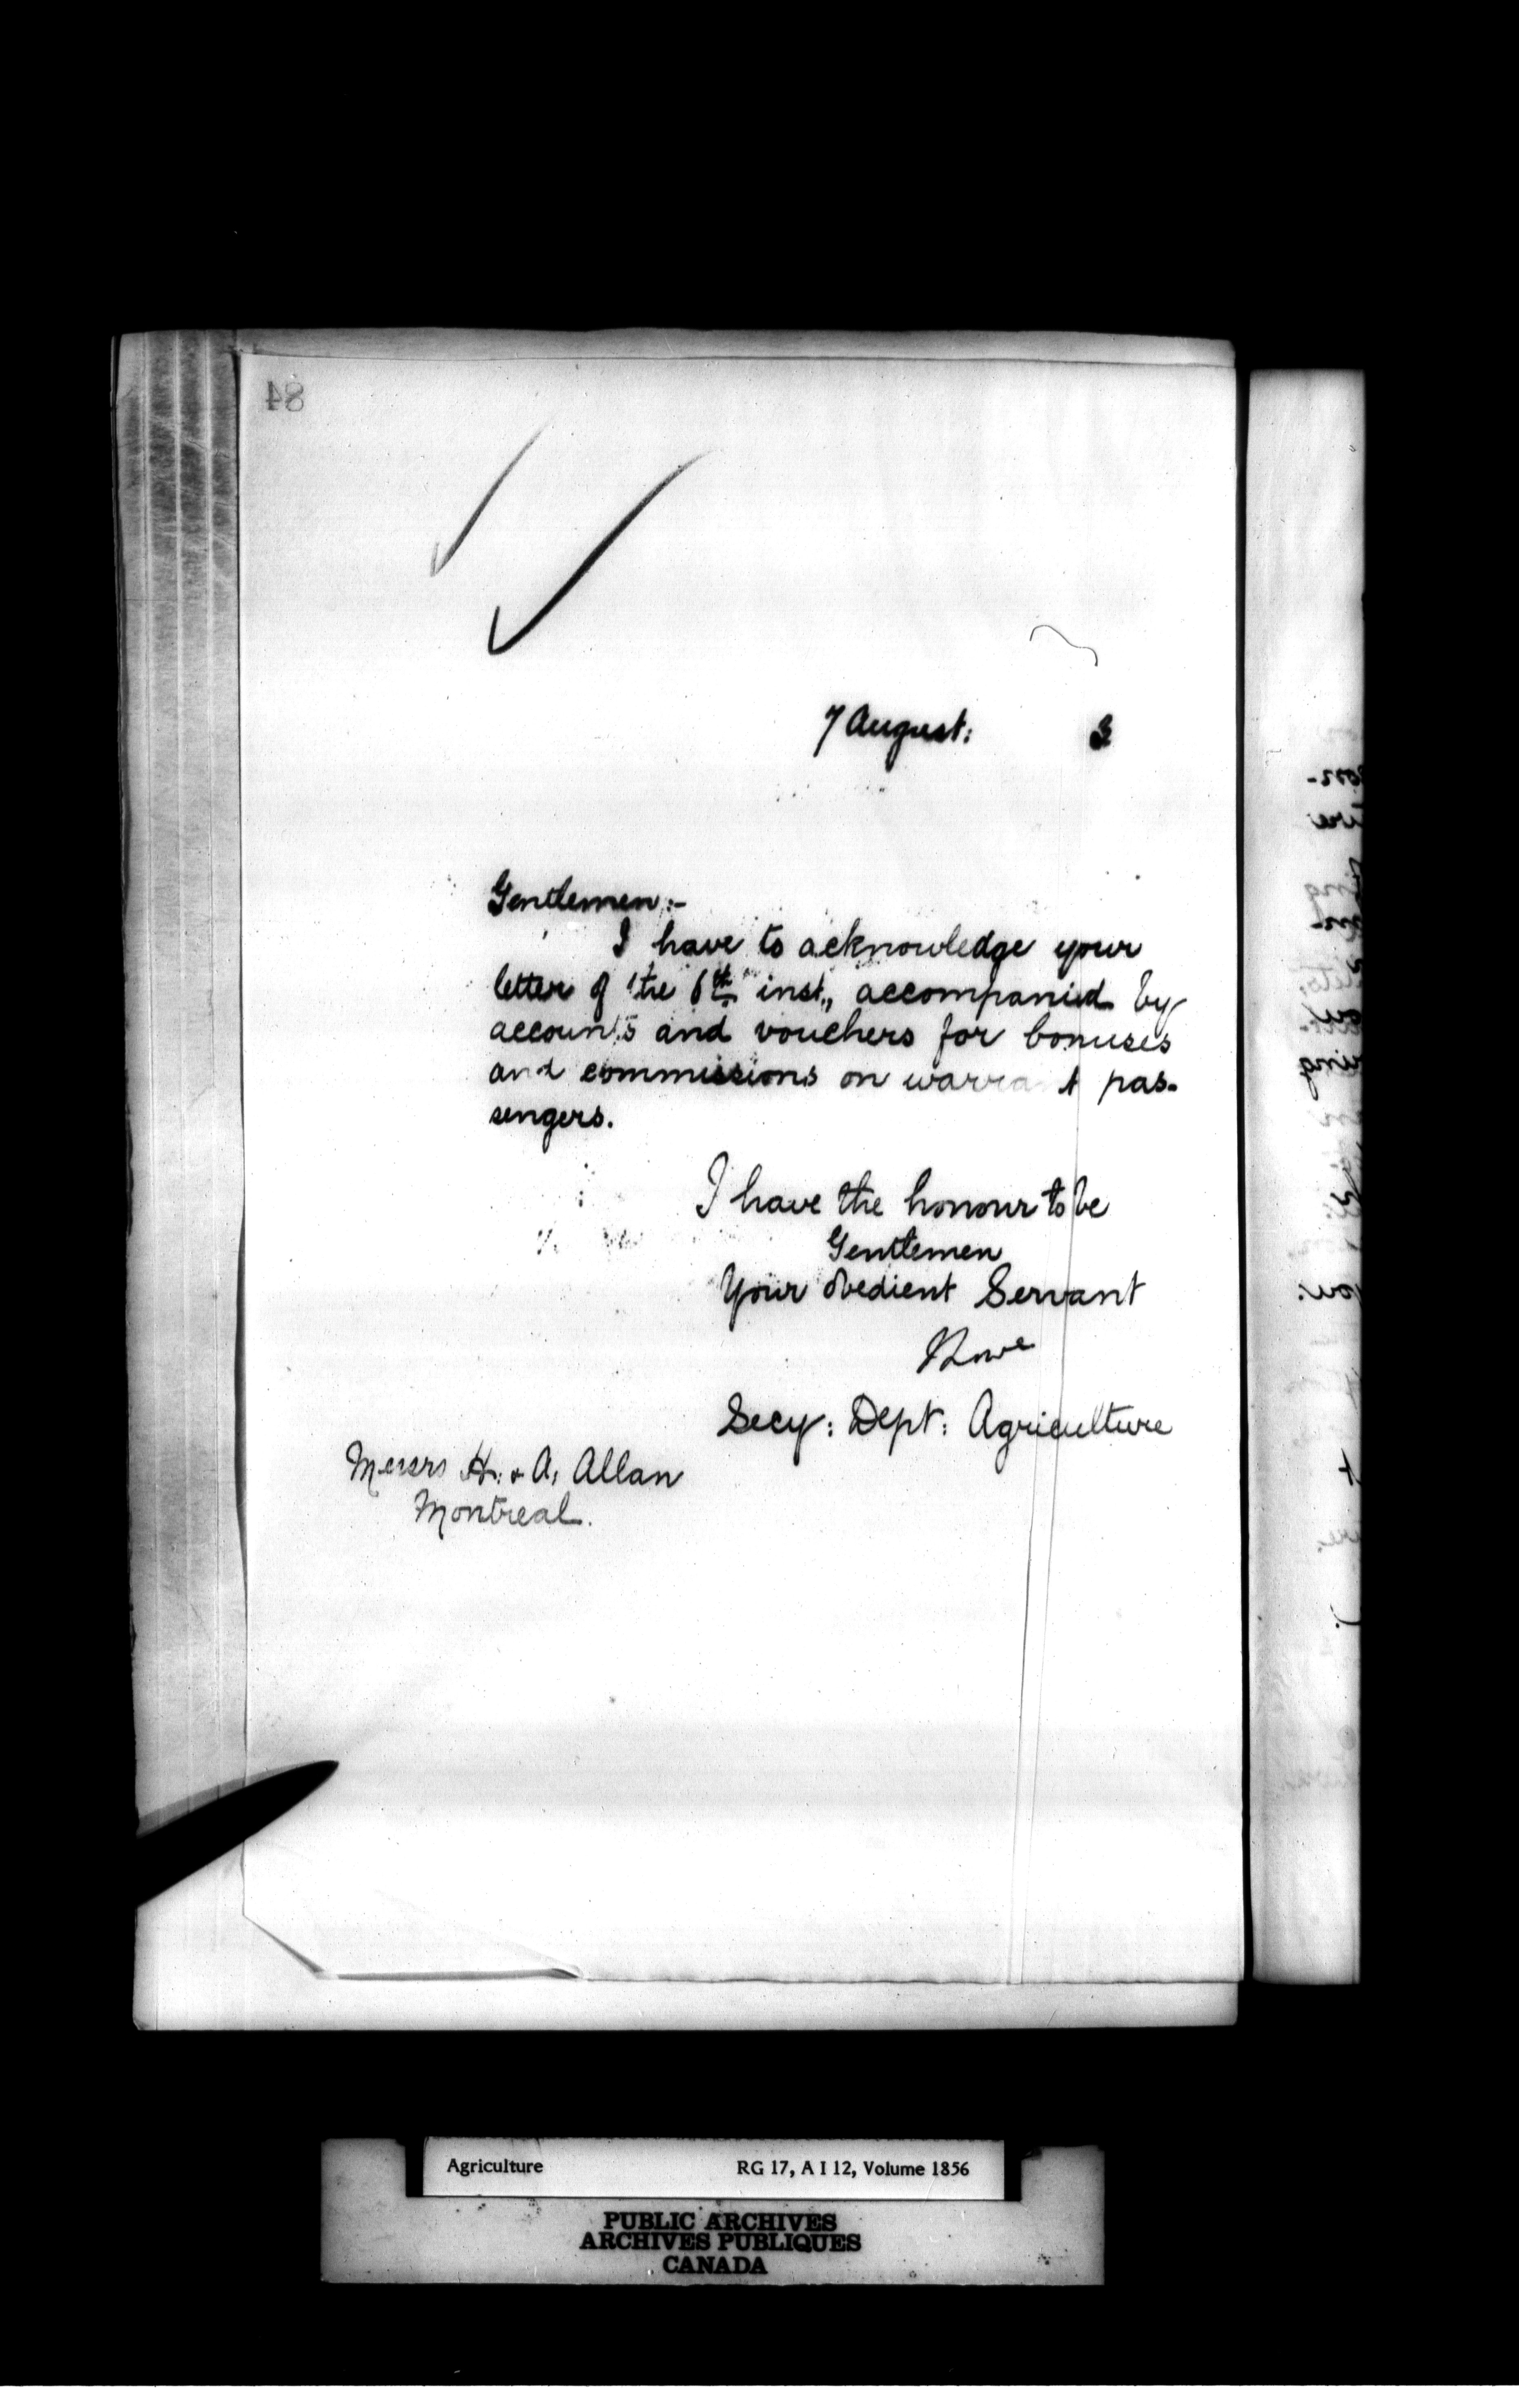 84
7 August: 3
Gentlemen:-
I have to acknowledge your
letter of the 6th inst., accompanied by
accounts and vouchers for bonuses
and commissions on warrant pas-
sengers.
I have the honour to be
Gentlemen
Your obedient Servant
Secy: Dept: Agriculture
Messrs H. & A. Allan
Montreal.
Agriculture RG 17, A I 12, Volume 1856
PUBLIC ARCHIVES
ARCHIVES PUBLIQUES
CANADA